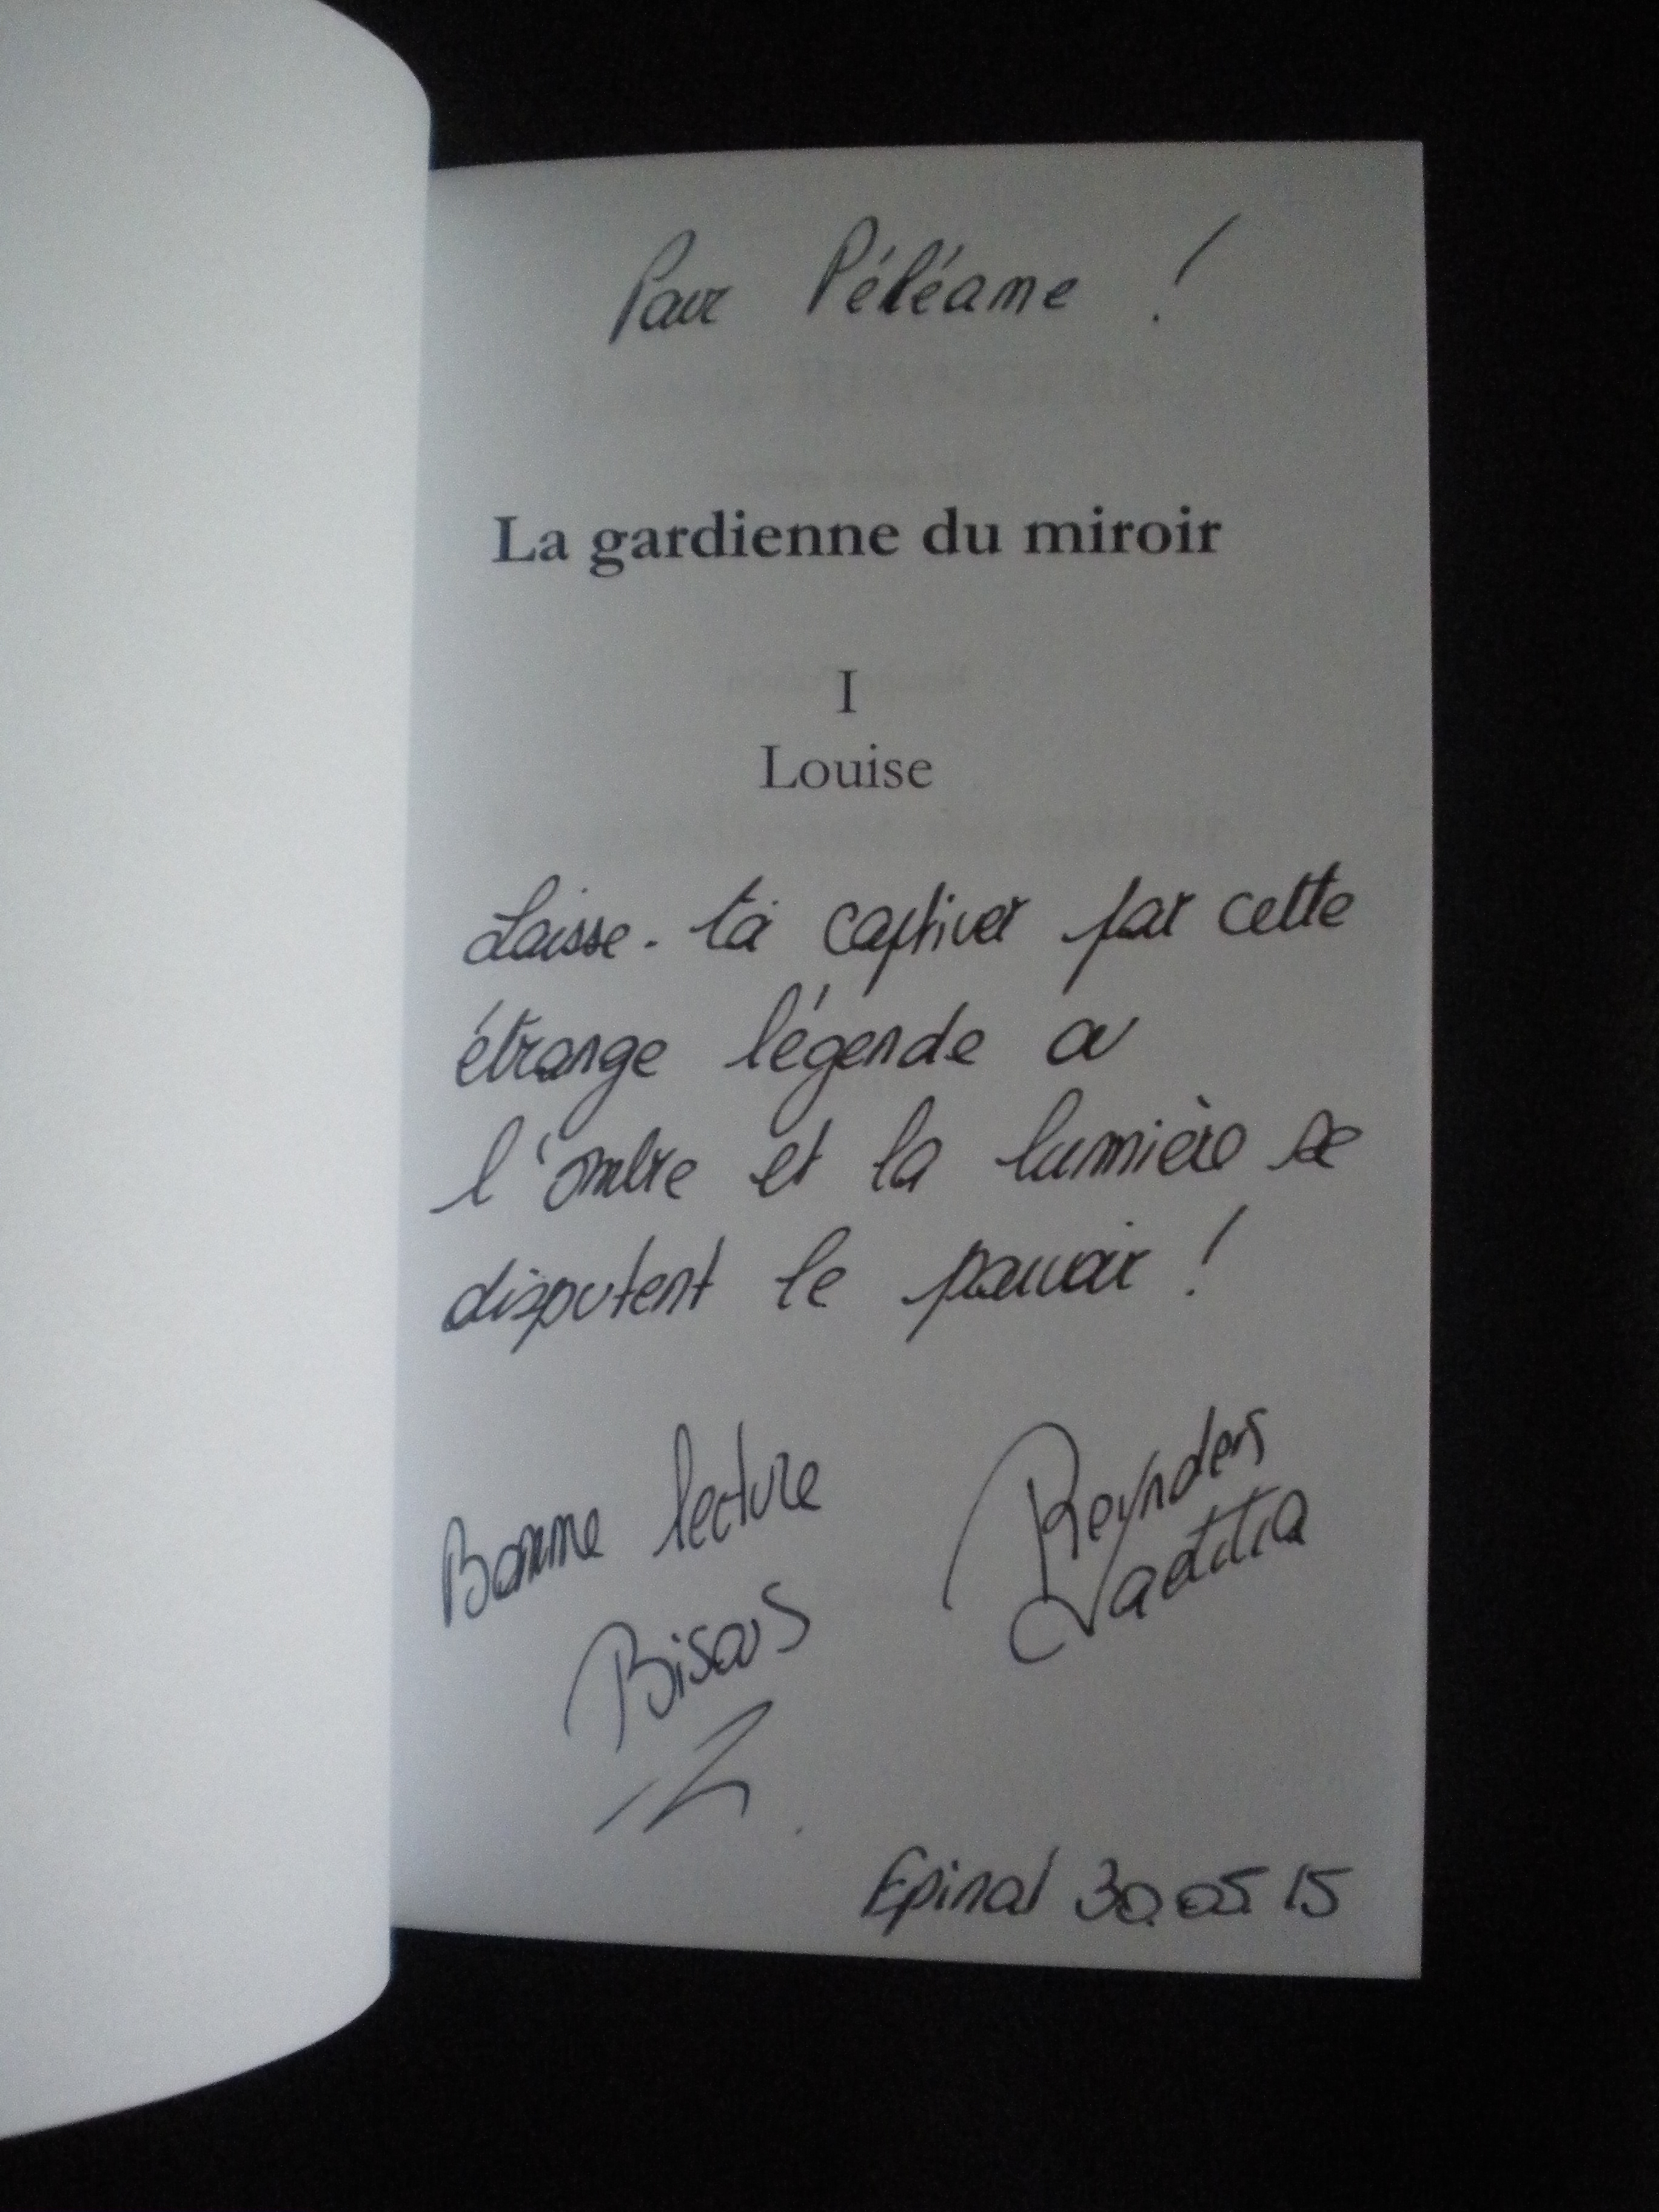 Pour Péléame !
La gardienne du miroir
I
Louise
Laisse-toi captiver par cette
étrange légende où
l'ombre et la lumière se
disputent le pouvoir !
Bonne lecture
Bisous
Reynders
Laetitia
Epinal 30.05.15